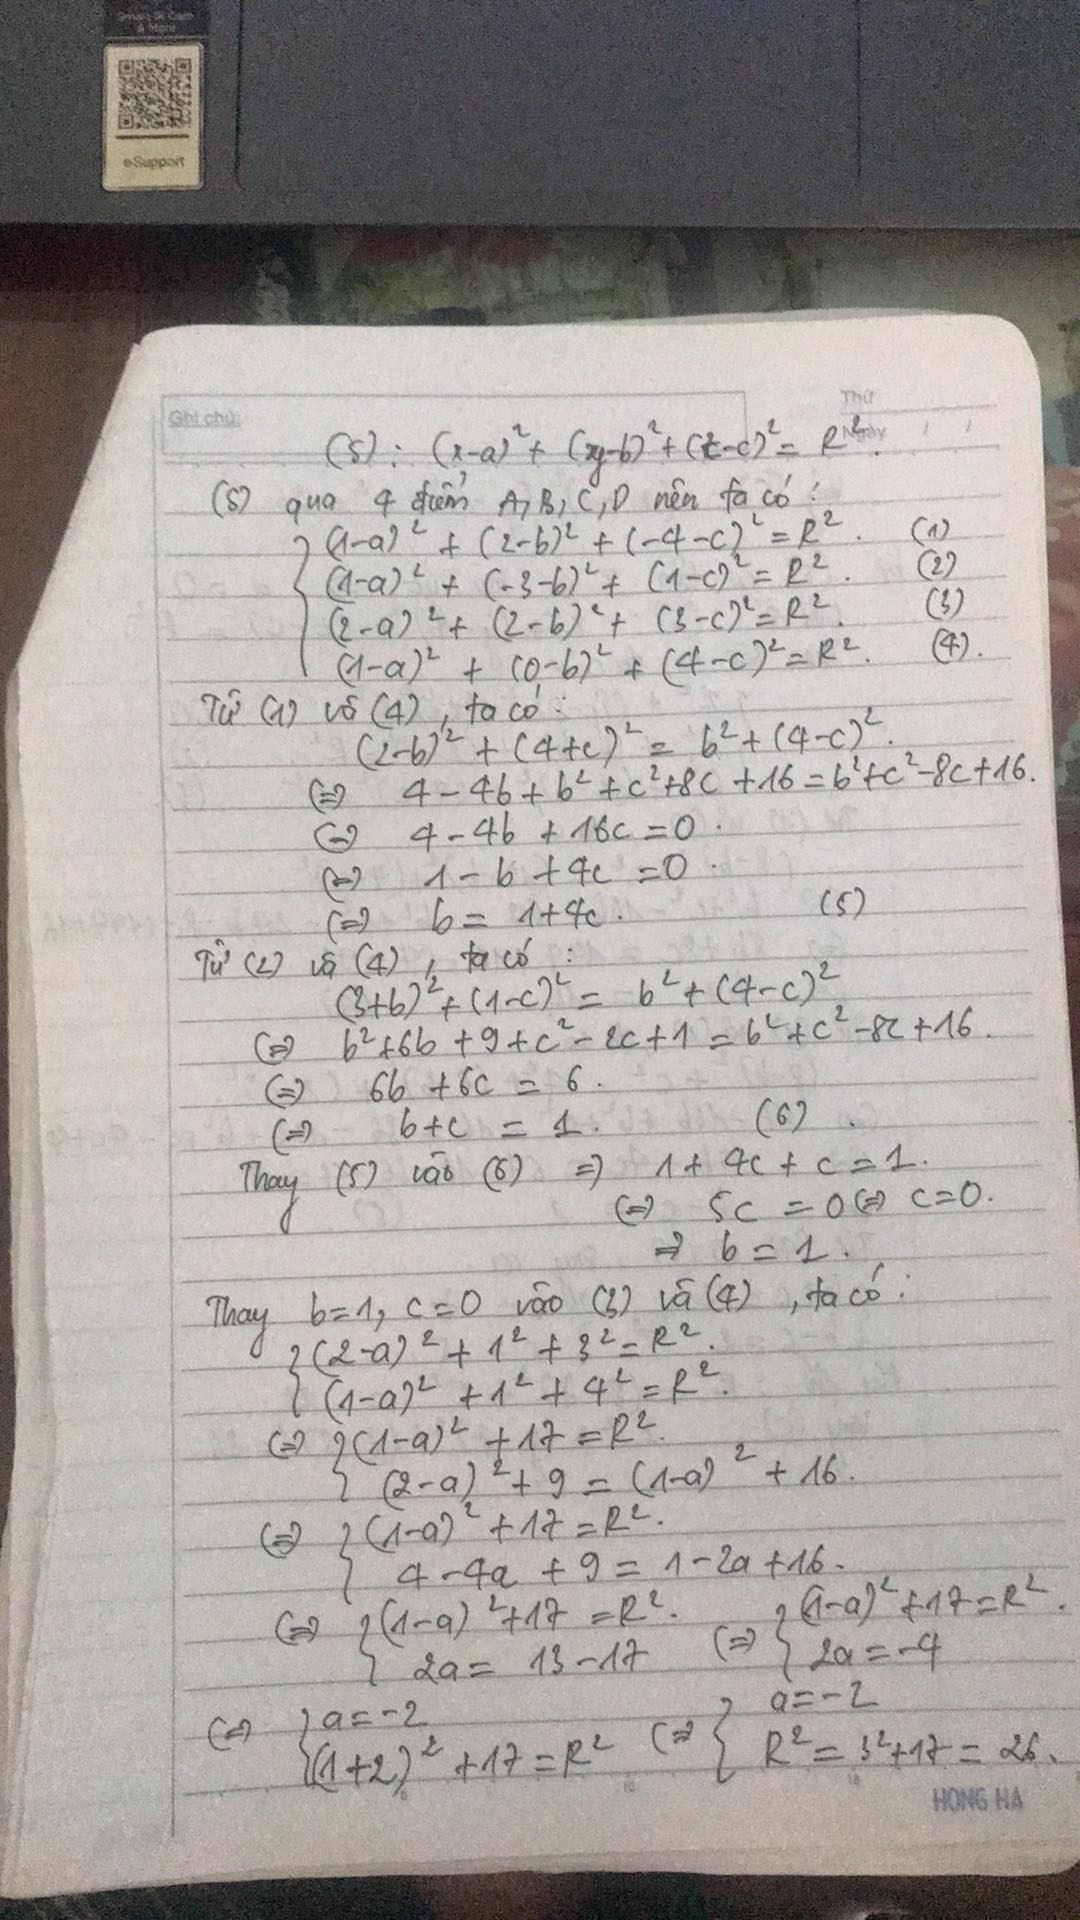 Smart AI Cam
& More
e-Support
Ghi chú:
Thứ
Ngày / /
(S): (x-a)² + (y-b)² + (z-c)² = R².
(S) qua 4 điểm A, B, C, D nên ta có:
(1-a)² + (2-b)² + (-4-c)² = R². (1)
(1-a)² + (-3-b)² + (1-c)² = R². (2)
(2-a)² + (2-b)² + (3-c)² = R². (3)
(1-a)² + (0-b)² + (4-c)² = R². (4).
Từ (1) và (4), ta có:
(2-b)² + (4+c)² = b² + (4-c)².
(=) 4 - 4b + b² + c² + 8c + 16 = b² + c² - 8c + 16.
(=) 4 - 4b + 16c = 0.
(=) 1 - b + 4c = 0.
(=) b = 1 + 4c. (5)
Từ (2) và (4), ta có:
(3+b)² + (1-c)² = b² + (4-c)²
(=) b² + 6b + 9 + c² - 2c + 1 = b² + c² - 8c + 16.
(=) 6b + 6c = 6.
(=) b + c = 1. (6).
Thay (5) vào (6) => 1 + 4c + c = 1.
(=) 5c = 0 (=) c = 0.
=> b = 1.
Thay b=1, c=0 vào (3) và (4), ta có:
{ (2-a)² + 1² + 3² = R².
(1-a)² + 1² + 4² = R².
(=) { (1-a)² + 17 = R².
(2-a)² + 9 = (1-a)² + 16.
(=) { (1-a)² + 17 = R².
4 - 4a + 9 = 1 - 2a + 16.
(=) { (1-a)² + 17 = R². (=) { (1-a)² + 17 = R².
2a = 13 - 17 2a = -4
(=) { a = -2 (=) { a = -2
(1+2)² + 17 = R² R² = 3² + 17 = 26.
HONG HA